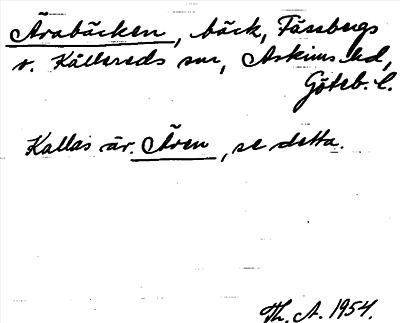 Årabäcken, bäck, Fässbergs
o. Kållereds snr, Askims hd,
Göteb. l.
Kallas är. Åren, se detta.
Th. A. 1954.